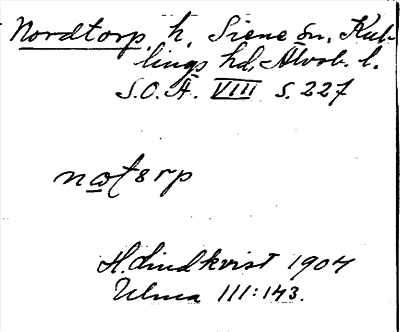 Nordtorp, h. Siene sn, Kul-
lings hd, Älvsb. l.
S.O.Ä. VIII s. 227
H. Lindkvist 1904
Ulma III:143.